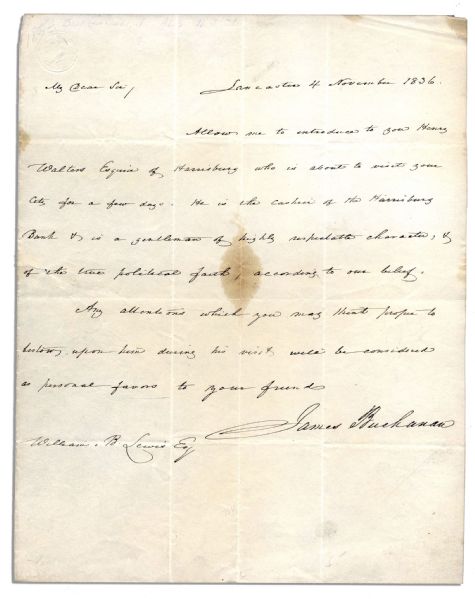 My Dear Sir,
Lancaster 4 November 1836.
Allow me to introduce to you Henry
Walters Esquire of Harrisburg who is about to visit your
City for a few days. He is the cashier of the Harrisburg
Bank & is a gentleman of highly respectable character, &
of the true political faith, according to our belief.
Any attentions which you may think proper to
bestow upon him during his visit will be considered
as personal favors to your friend
James Buchanan
William B Lewis Esq